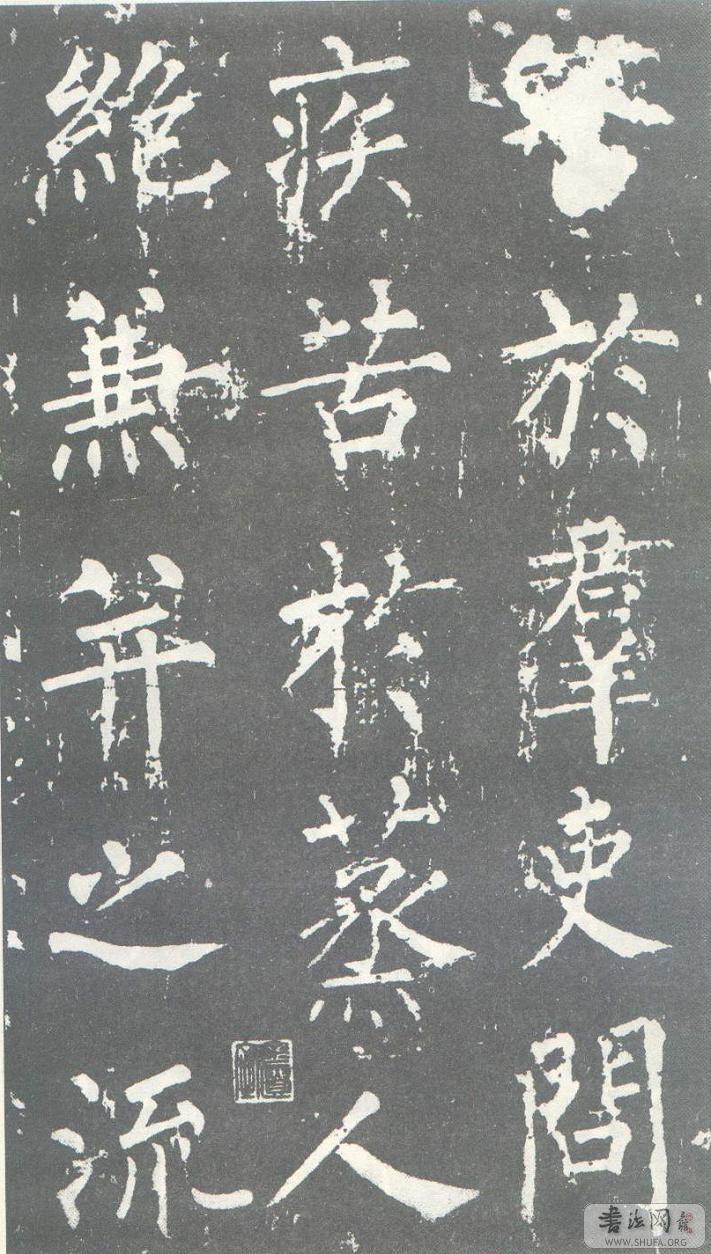 於群吏問
疾苦於蒸人
絶兼并之流
書法网
WWW.SHUFA.ORG